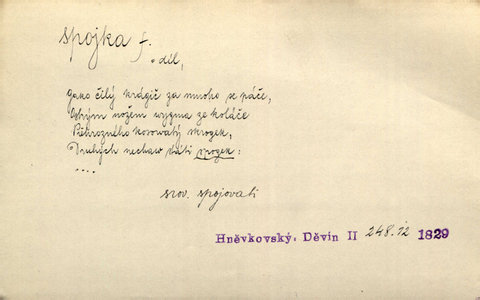 spojka f.
díl,
Gako čilý krágič za mnoho se páče,
Ostrým nožem wygma ze koláče
Pěkrozného kosowatý skrogek,
Druhých nechaw státi spogek:
....
srov. spojovati
Hněvkovský, Děvín II 248.12 1829